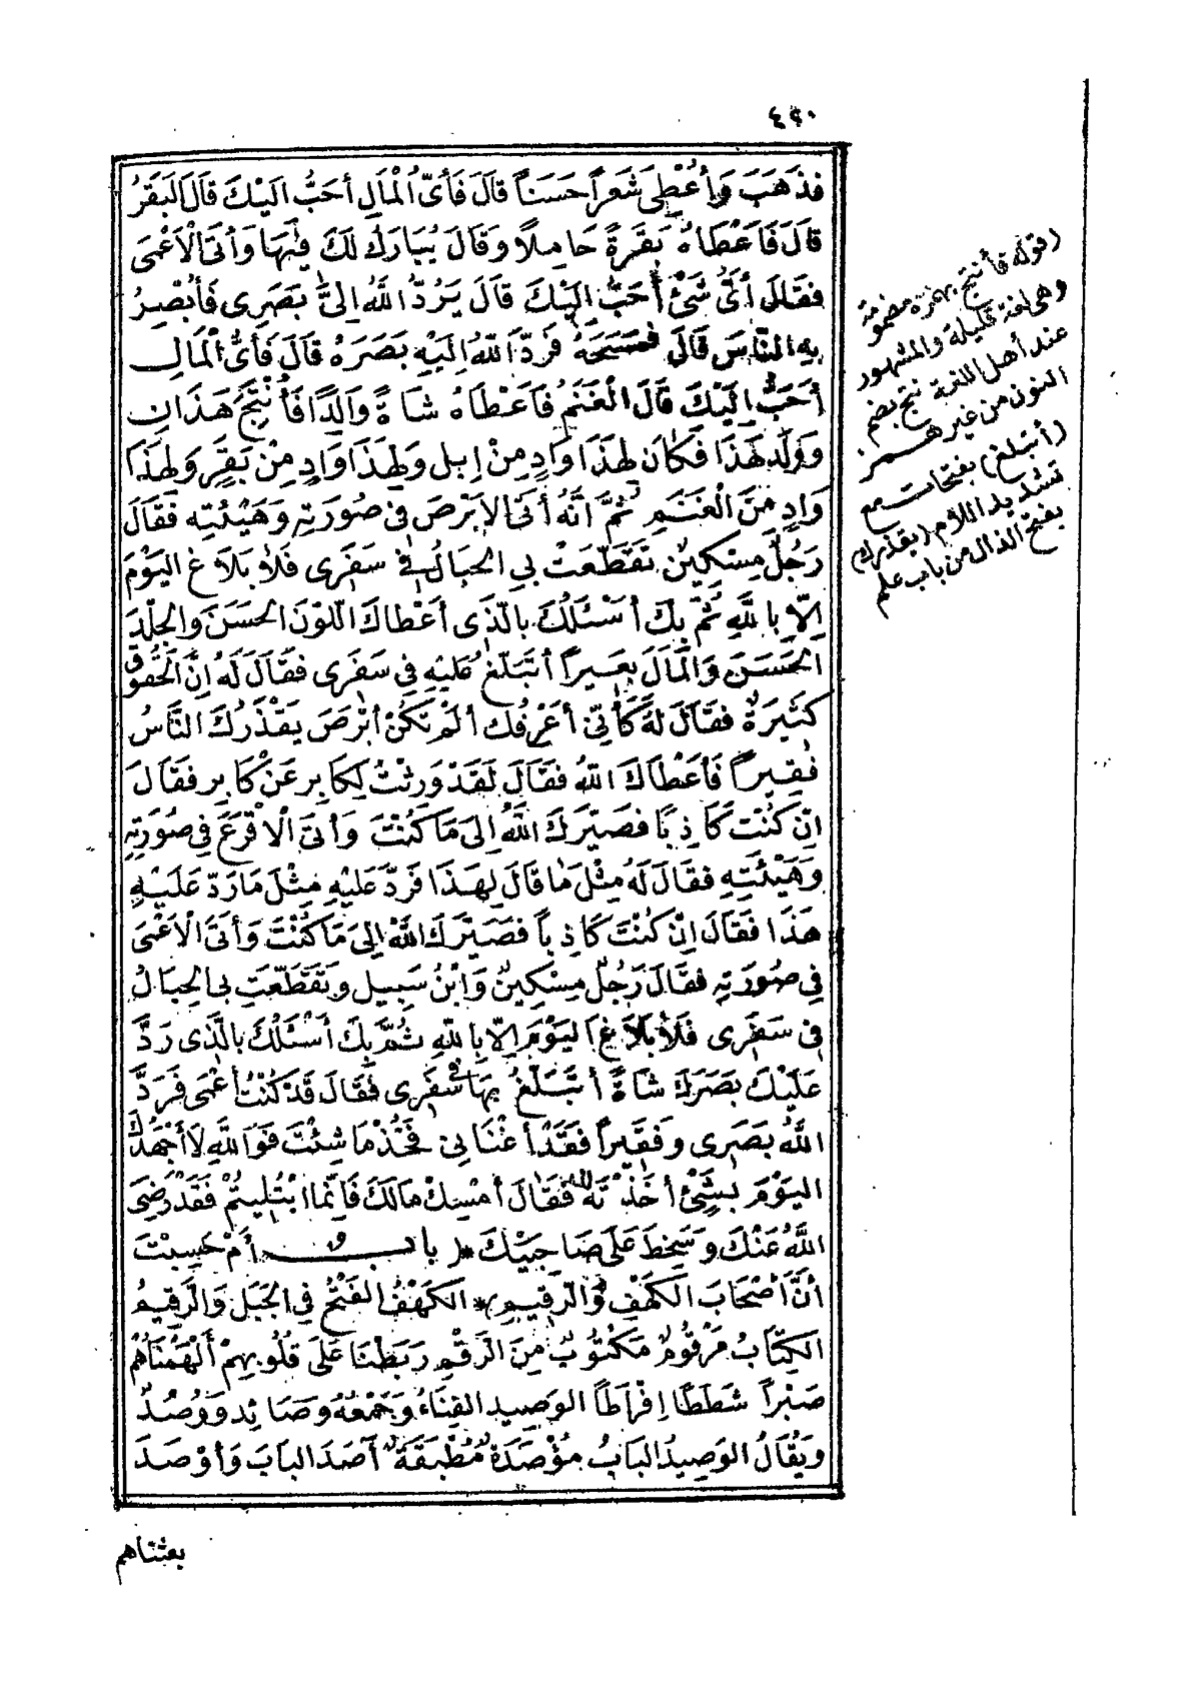 ٤٩٠
فَذَهَبَ وَأُعْطِيَ شَعَراً حَسَناً قَالَ فَأَيُّ الْمَالِ أَحَبُّ اِلَيْكَ قَالَ البَقَرُ
قَالَ فَاَعْطَاهُ بَقَرَةً حَامِلًا وَقَالَ يُبَارَكُ لَكَ فِيْهَا وَأَتَى الْاَعْمَى
فَقَالَ أَىُّ شَىْءٍ أَحَبُّ اِلَيْكَ قَالَ يَرُدُّ اللّٰهُ اِلَىَّ بَصَرِى فَأُبْصِرُ
بِهِ النَّاسَ قَالَ فَمَسَحَهُ فَرَدَّ اللّٰهُ اِلَيْهِ بَصَرَهُ قَالَ فَأَىُّ الْمَالِ
أَحَبُّ اِلَيْكَ قَالَ الْغَنَمُ فَاَعْطَاهُ شَاةً وَالِدًا فَأُنْتِجَ هَذَانِ
وَوَلَّدَ هَذَا فَكَانَ لِهَذَا وَادٍ مِنْ اِبِلٍ وَلِهَذَا وَادٍ مِنْ بَقَرٍ وَلِهَذَا
وَادٍ مِنَ الْغَنَمِ ثُمَّ اَنَّهُ أَتَى الاَبْرَصَ فِى صُورَتِهِ وَهَيْئَتِهِ فَقَالَ
رَجُلٌ مِسْكِينٌ تَقَطَّعَتْ بِيَ الحِبَالُ فِى سَفَرِى فَلاَ بَلاَغَ اليَوْمَ
اِلاَّ بِاللّٰهِ ثُمَّ بِكَ أَسْئَلُكَ بِالَّذِى أَعْطَاكَ اللَّوْنَ الحَسَنَ وَالجِلْدَ
الحَسَنَ وَالْمَالَ بَعِيراً أَتَبَلَّغُ عَلَيْهِ فِى سَفَرِى فَقَالَ لَهُ اِنَّ الحُقُوقَ
كَثِيرَةٌ فَقَالَ لَهُ كَأَنِّى أَعْرِفُكَ أَلَمْ تَكُنْ أَبْرَصَ يَقْذَرُكَ النَّاسُ
فَقِيراً فَأَعْطَاكَ اللّٰهُ فَقَالَ لَقَدْ وَرِثْتُ لِكَابِرٍ عَنْ كَابِرٍ فَقَالَ
اِنْ كُنْتَ كَاذِبًا فَصَيَّرَكَ اللّٰهُ اِلَى مَا كُنْتَ وَأَتَى الْاَقْرَعَ فِى صُورَتِهِ
وَهَيْئَتِهِ فَقَالَ لَهُ مِثْلَ مَا قَالَ لِهَذَا فَرَدَّ عَلَيْهِ مِثْلَ مَا رَدَّ عَلَيْهِ
هَذَا فَقَالَ اِنْ كُنْتَ كَاذِباً فَصَيَّرَكَ اللّٰهُ اِلَى مَا كُنْتَ وَأَتَى الْاَعْمَى
فِى صُورَتِهِ فَقَالَ رَجُلٌ مِسْكِينٌ وَابْنُ سَبِيلٍ وَتَقَطَّعَتْ بِىَ الحِبَالُ
فِى سَفَرِى فَلَا بَلَاغَ اليَوْمَ اِلاَّ بِاللّٰهِ ثُمَّ بِكَ أَسْئَلُكَ بِالَّذِى رَدَّ
عَلَيْكَ بَصَرَكَ شَاةً أَتَبَلَّغُ بِهَا فِى سَفَرِى فَقَالَ قَدْ كُنْتُ أَعْمَى فَرَدَّ
اللّٰهُ بَصَرِى وَفَقِيراً فَقَدْ أَغْنَانِى فَخُذْ مَا شِئْتَ فَوَاللّٰهِ لَا أَجْهَدُكَ
اليَوْمَ بِشَىْءٍ أَخَذْتَهُ لِلّٰهِ فَقَالَ أَمْسِكْ مَالَكَ فَاِنَّمَا ابْتُلِيتُمْ فَقَدْ رَضِىَ
اللّٰهُ عَنْكَ وَسَخِطَ عَلَى صَاحِبَيْكَ *(بابٌ أَمْ حَسِبْتَ
أَنَّ أَصْحَابَ الْكَهْفِ وَالرَّقِيمِ)* الكَهْفُ الفَتْحُ فِى الجَبَلِ وَالرَّقِيمُ
الكِتَابُ مَرْقُومٌ مَكْتُوبٌ مِنَ الرَّقْمِ رَبَطْنَا عَلَى قُلُوبِهِمْ أَلْهَمْنَاهُمْ
صَبْراً شَطَطًا اِفْرَاطًا الوَصِيدُ الفِنَاءُ وَجَمْعُهُ وَصَائِدُ وَوُصُدٌ
وَيُقَالُ الوَصِيدُ البَابُ مُؤْصَدَةٌ مُطْبَقَةٌ آصَدَ البَابَ وَأَوْصَدَ
بعثناهم
(قوله فأنتج) بهمزة مضمومة
وهى لغة قليلة والمشهور
عند أهل اللغة نتج بضم
النون من غير همز
(أتبلغ) بفتحات مع
تشديد اللام (يقذرك)
بفتح الذال من باب علم